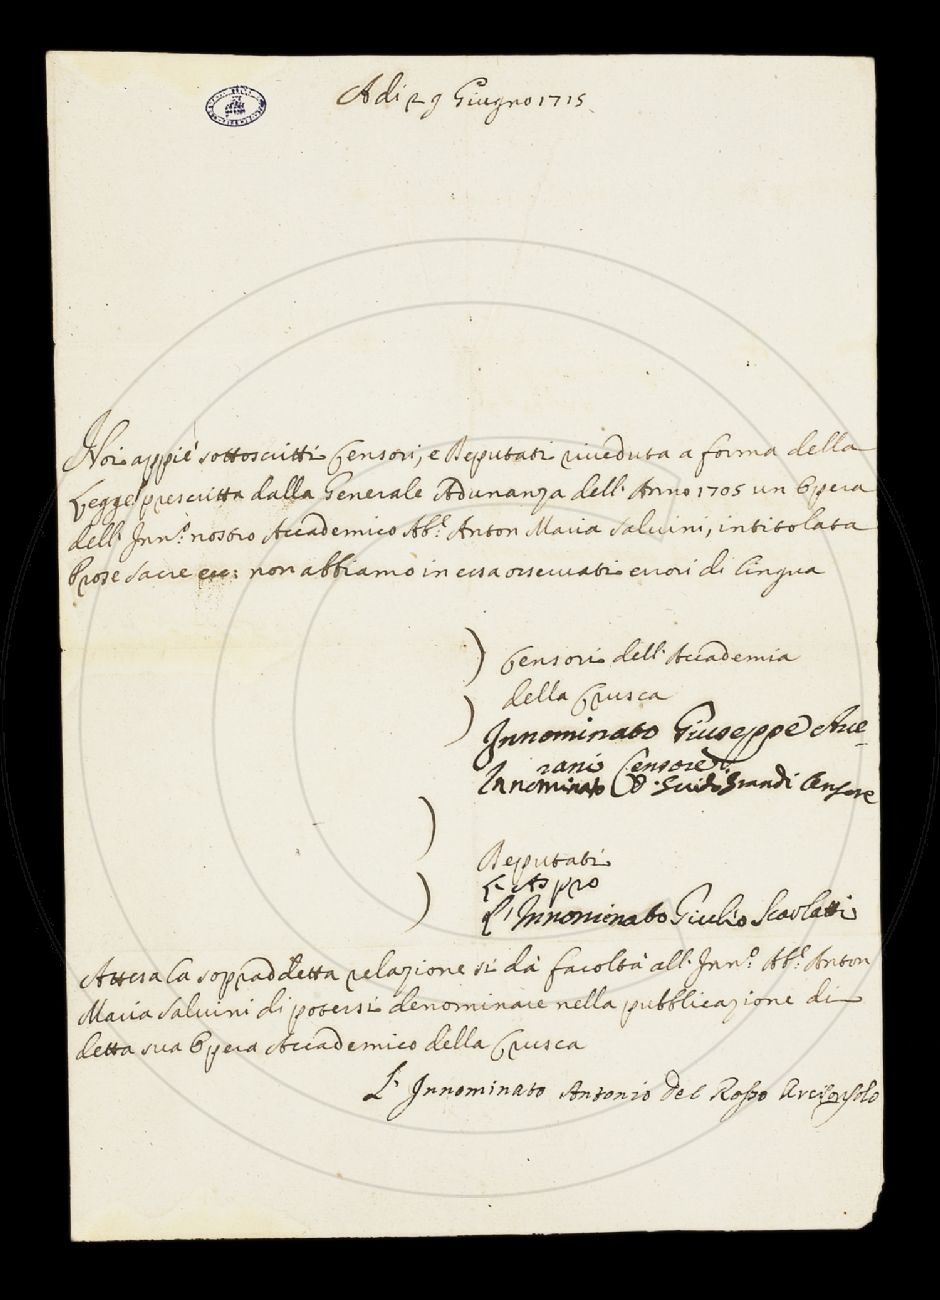 Adi 29 Giugno 1715
Noi appiè sottoscritti Censori, e Deputati riveduta a forma della
Legge prescritta dalla Generale Adunanza dell' Anno 1705 un Opera
dell' Inn.º nostro Accademico Ab.e Anton Maria Salvini, intitolata
Prose Sacre etc: non abbiamo in essa osservati errori di lingua
Censori dell' Accademia
della Crusca
Innominato Giuseppe Ave-
rani Censore
Innominato D. Guido Grandi Censore
Deputati
L'Aspro
L'Innominato Giulio Scarlatti
Attesa la sopraddetta relazione si dà facoltà all' Inn.º Ab.e Anton
Maria Salvini di potersi denominare nella pubblicazione di
detta sua Opera Accademico della Crusca
L' Innominato Antonio del Rosso Arciconsolo